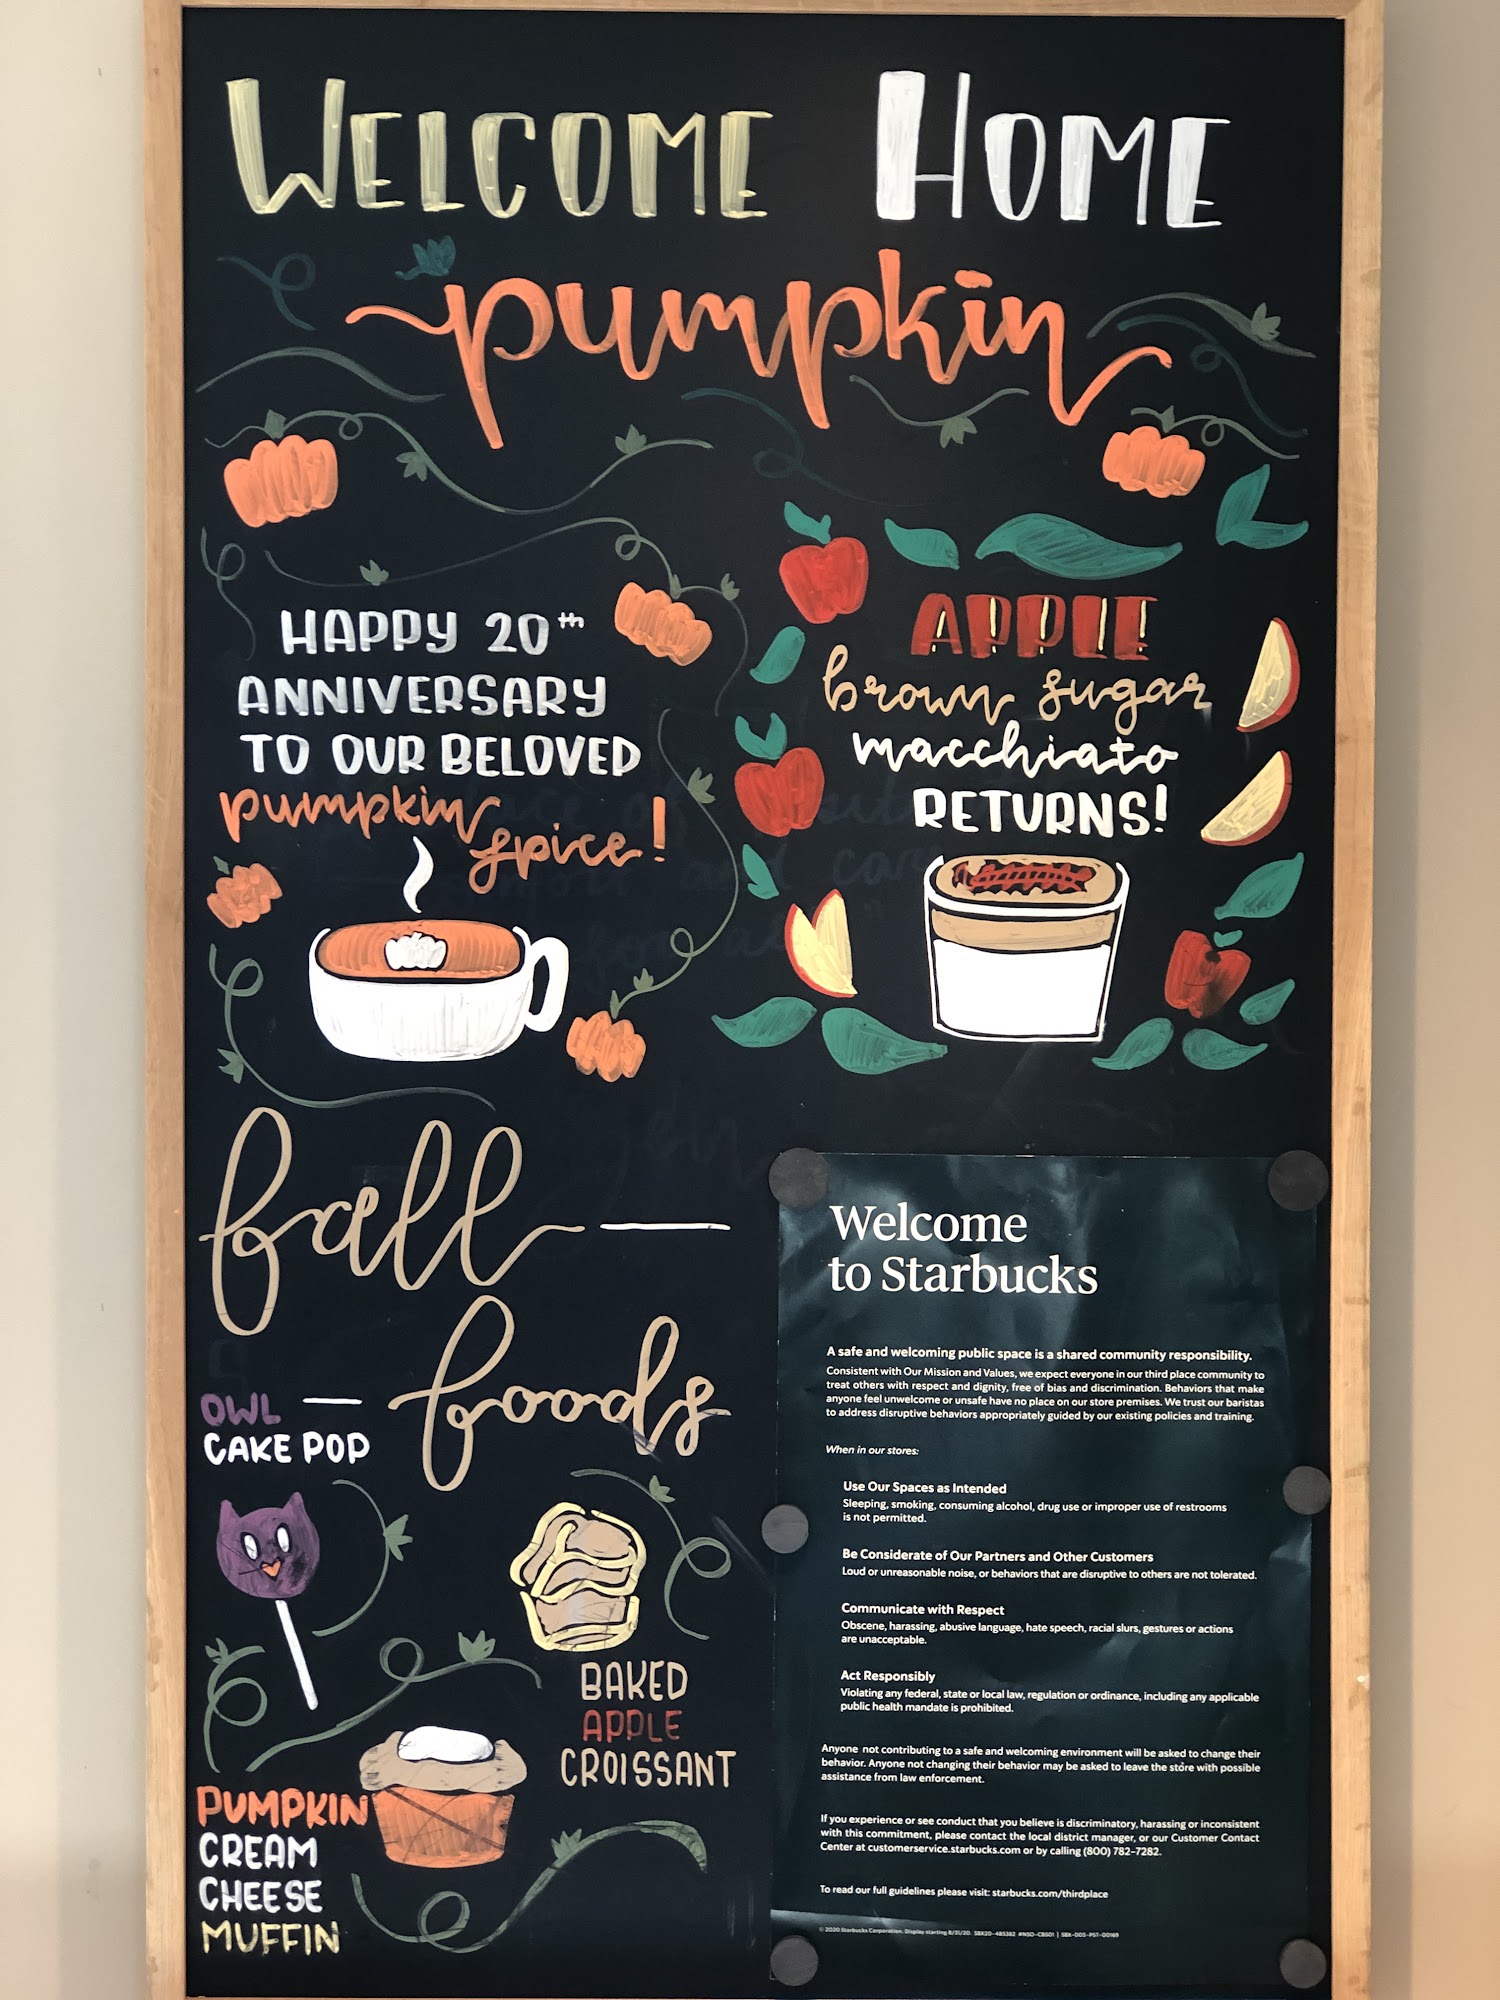 WELCOME HOME
pumpkin
HAPPY 20th
ANNIVERSARY
TO OUR BELOVED
pumpkin
spice!
APPLE
brown sugar
macchiato
RETURNS!
fall
foods
OWL
CAKE POP
BAKED
APPLE
CROISSANT
PUMPKIN
CREAM
CHEESE
MUFFIN
Welcome
to Starbucks
A safe and welcoming public space is a shared community responsibility.
Consistent with Our Mission and Values, we expect everyone in our third place community to
treat others with respect and dignity, free of bias and discrimination. Behaviors that make
anyone feel unwelcome or unsafe have no place on our store premises. We trust our baristas
to address disruptive behaviors appropriately guided by our existing policies and training.
When in our stores:
Use Our Spaces as Intended
Sleeping, smoking, consuming alcohol, drug use or improper use of restrooms
is not permitted.
Be Considerate of Our Partners and Other Customers
Loud or unreasonable noise, or behaviors that are disruptive to others are not tolerated.
Communicate with Respect
Obscene, harassing, abusive language, hate speech, racial slurs, gestures or actions
are unacceptable.
Act Responsibly
Violating any federal, state or local law, regulation or ordinance, including any applicable
public health mandate is prohibited.
Anyone not contributing to a safe and welcoming environment will be asked to change their
behavior. Anyone not changing their behavior may be asked to leave the store with possible
assistance from law enforcement.
If you experience or see conduct that you believe is discriminatory, harassing or inconsistent
with this commitment, please contact the local district manager, or our Customer Contact
Center at customerservice.starbucks.com or by calling (800) 782-7282.
To read our full guidelines please visit: starbucks.com/thirdplace
© 2020 Starbucks Corporation. Display starting 8/31/20. SBX20-485382 #NSO-CBS01 | SBX-005-PST-00169